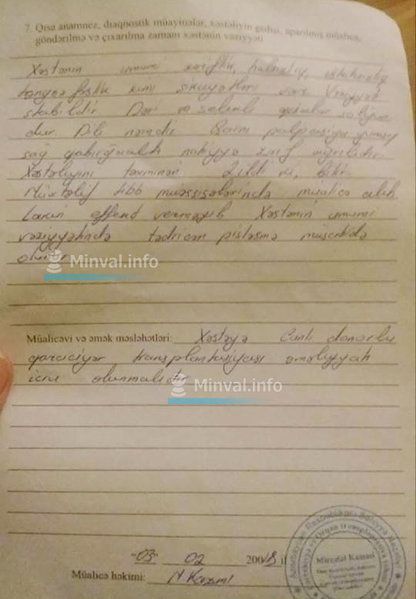 7. Qısa anamnez, diaqnostik müayinələr, xəstəliyin gedişi, aparılmış müalicə,
göndərilmə və çıxarılma zamanı xəstənin vəziyyəti
Xəstənin ümumi zəiflik, halsızlıq, iştahasızlıq
təngnəfəslik kimi şikayətləri var. Vəziyyəti
stabildir. Dəri və selikli qişalar
dur. Dili nəmdir. Qarın palpasiyaya yumşaq
sağ qabırğaaltı nahiyyə zəif ağrılıdır.
Xəstəliyini təxminən 2 ildi ki, bilir.
Müxtəlif tibb müəssisələrində müalicə alıb
Lakin effekt verməyib. Xəstənin ümumi
vəziyyətində tədricən pisləşmə müşahidə
olunur.
Minval.info
Müalicəvi və əmək məsləhətləri: Xəstəyə Canlı donorlu
qaraciyər transplantasiyası əməliyyatı
icra olunmalıdır.
Minval.info
"03" 02 2018 il
Müalicə həkimi: N Kazımi
Mircəlal Kazımi